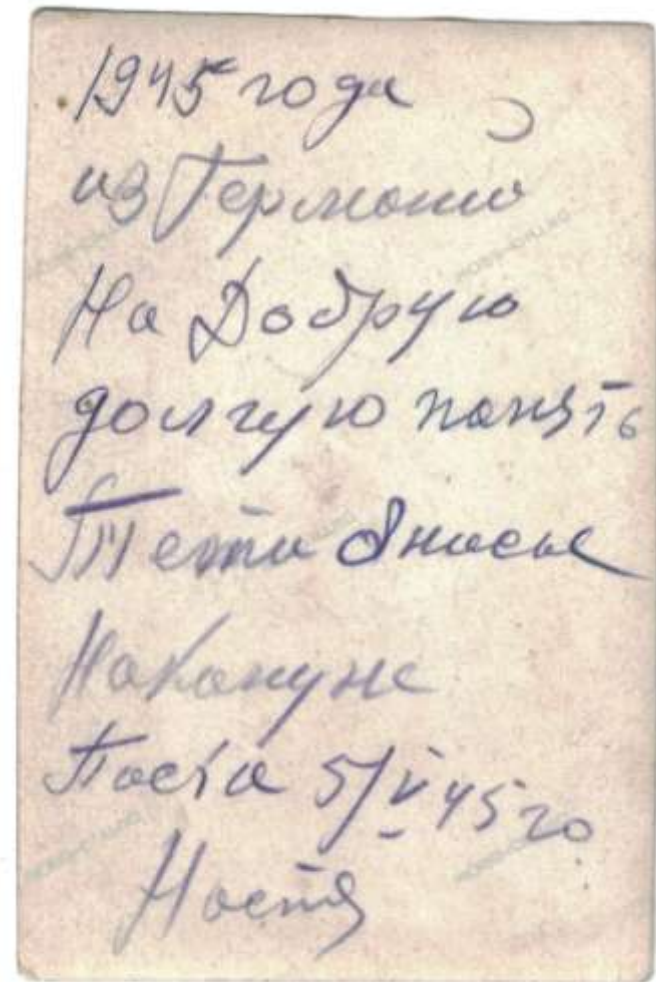 1945 года
из Германии
На Добрую
долгую память
Тети
Накануне
5/V 45 го
Настя